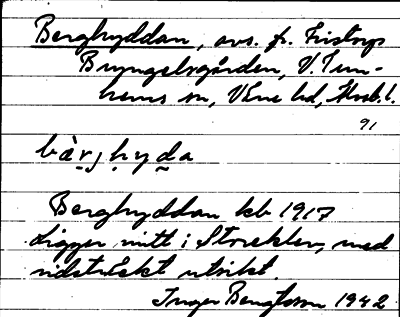 Berghyddan, avs. fr. Fristorp
Bryngelsgården, V. Tun-
hems sn, Väne hd, Älvsb. l.
91
bàrjhyda
Berghyddan kb 1917
Ligger mitt i Storeklev, med
vidsträckt utsikt.
Inger Bengtsson 1942